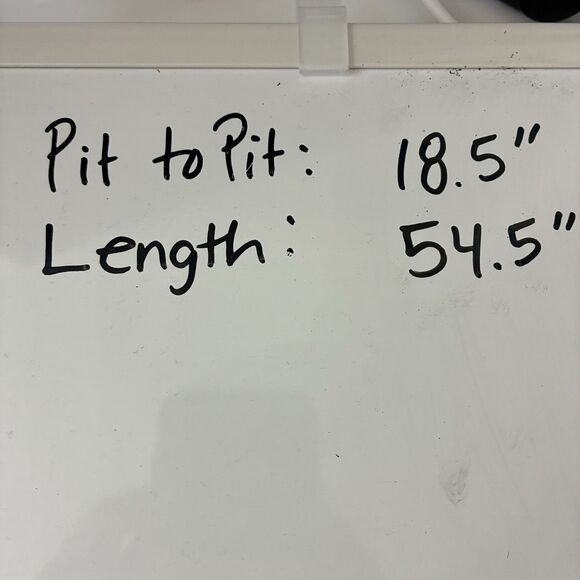 Pit to Pit: 18.5"
Length: 54.5"